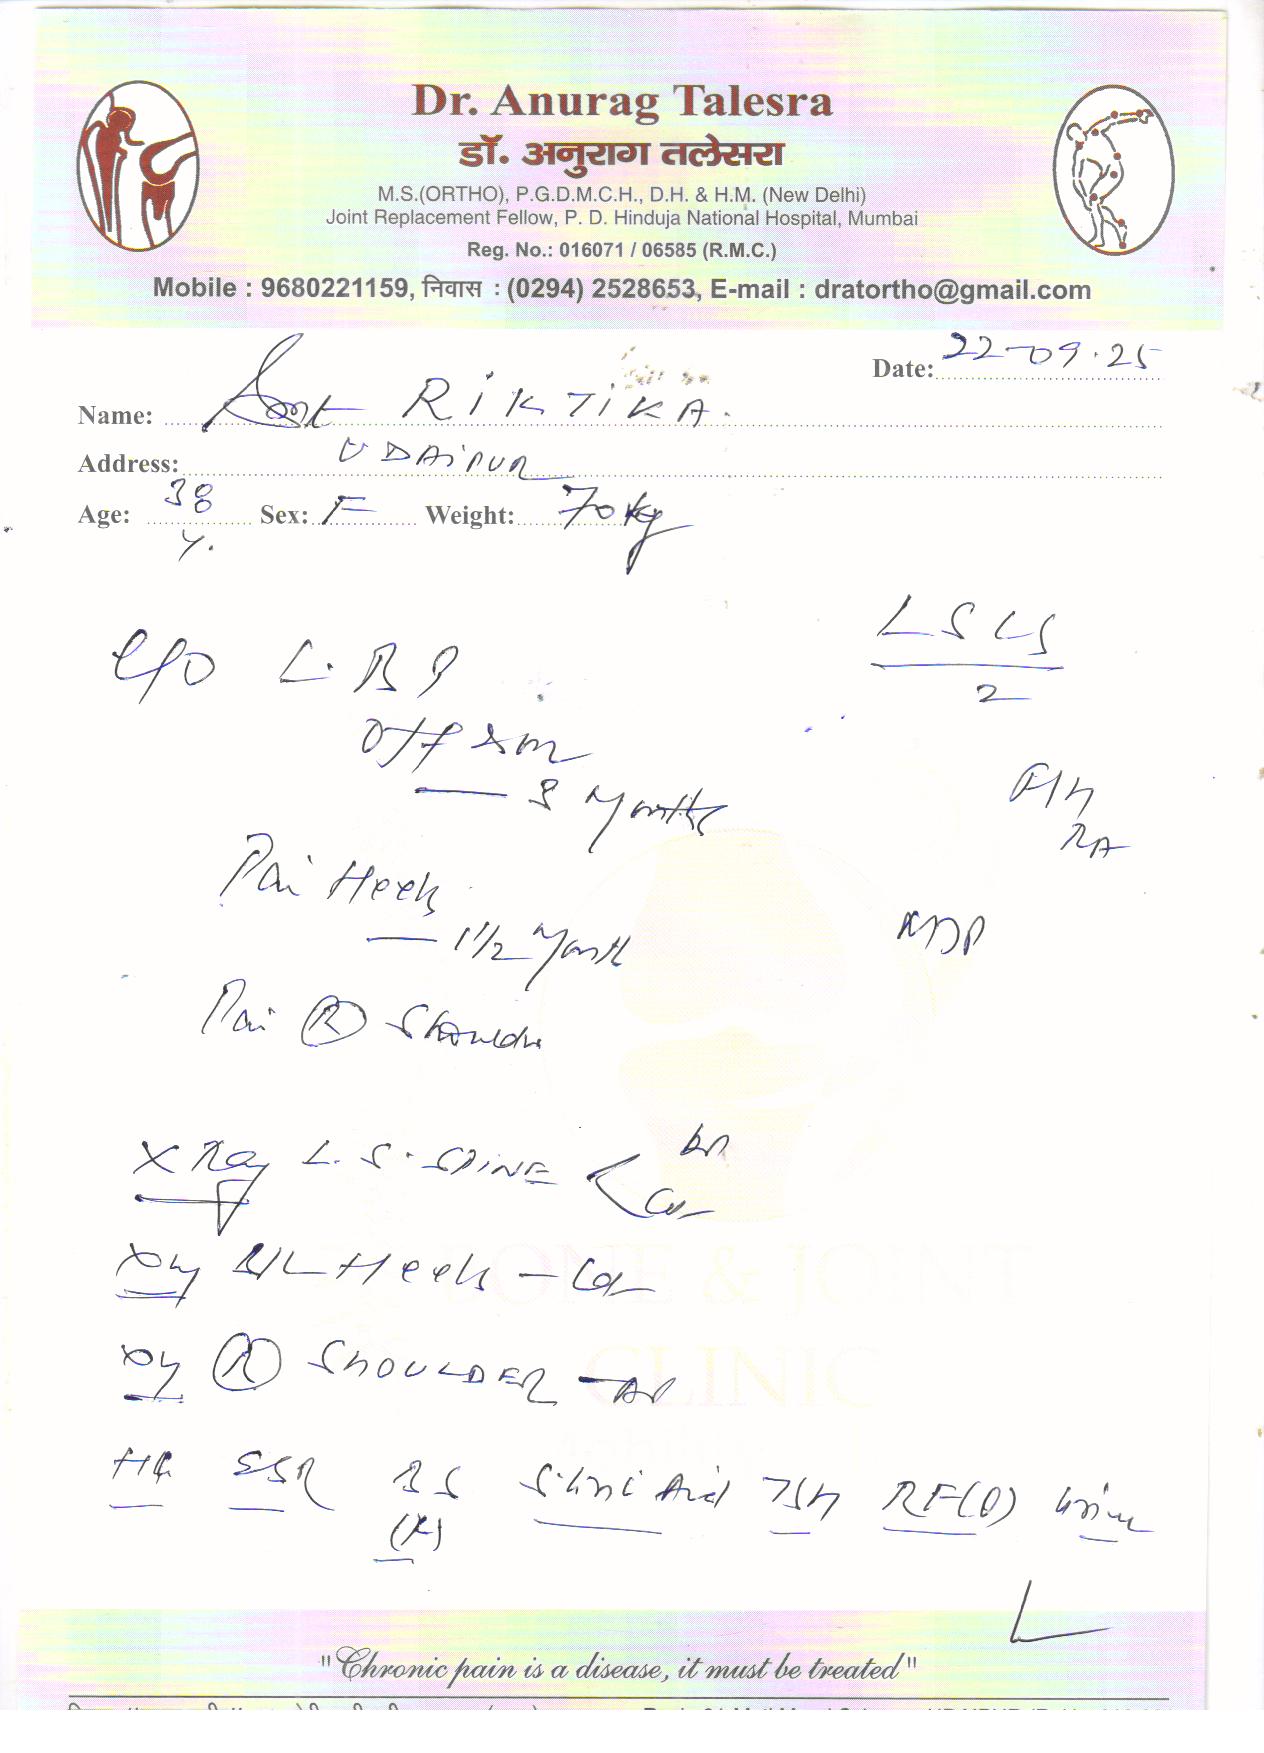 Dr. Anurag Talesra
डॉ. अनुराग तलेसरा
M.S.(ORTHO), P.G.D.M.C.H., D.H. & H.M. (New Delhi)
Joint Replacement Fellow, P. D. Hinduja National Hospital, Mumbai
Reg. No.: 016071 / 06585 (R.M.C.)
Mobile : 9680221159, निवास : (0294) 2528653, E-mail : dratortho@gmail.com
Date: 22-09-25
Name: RIKTIKA.
Address: UDAIPUR
Age: 38 y. Sex: F Weight: 70 kg
LSCS
2
C/O L.B.P
Off & on
— 3 Months
F/H
RA
Pain Heels
— 1 1/2 Month
Pain (R) Shoulder
X Ray L.S. SPINE < AP
Lat
Xray B/L Heels – Lat
Xray (R) SHOULDER – AP
ESR BS S. Uric Acid TSH RF(Q) Urine
(R)
BONE & JOINT
CLINIC
"Chronic pain is a disease, it must be treated"